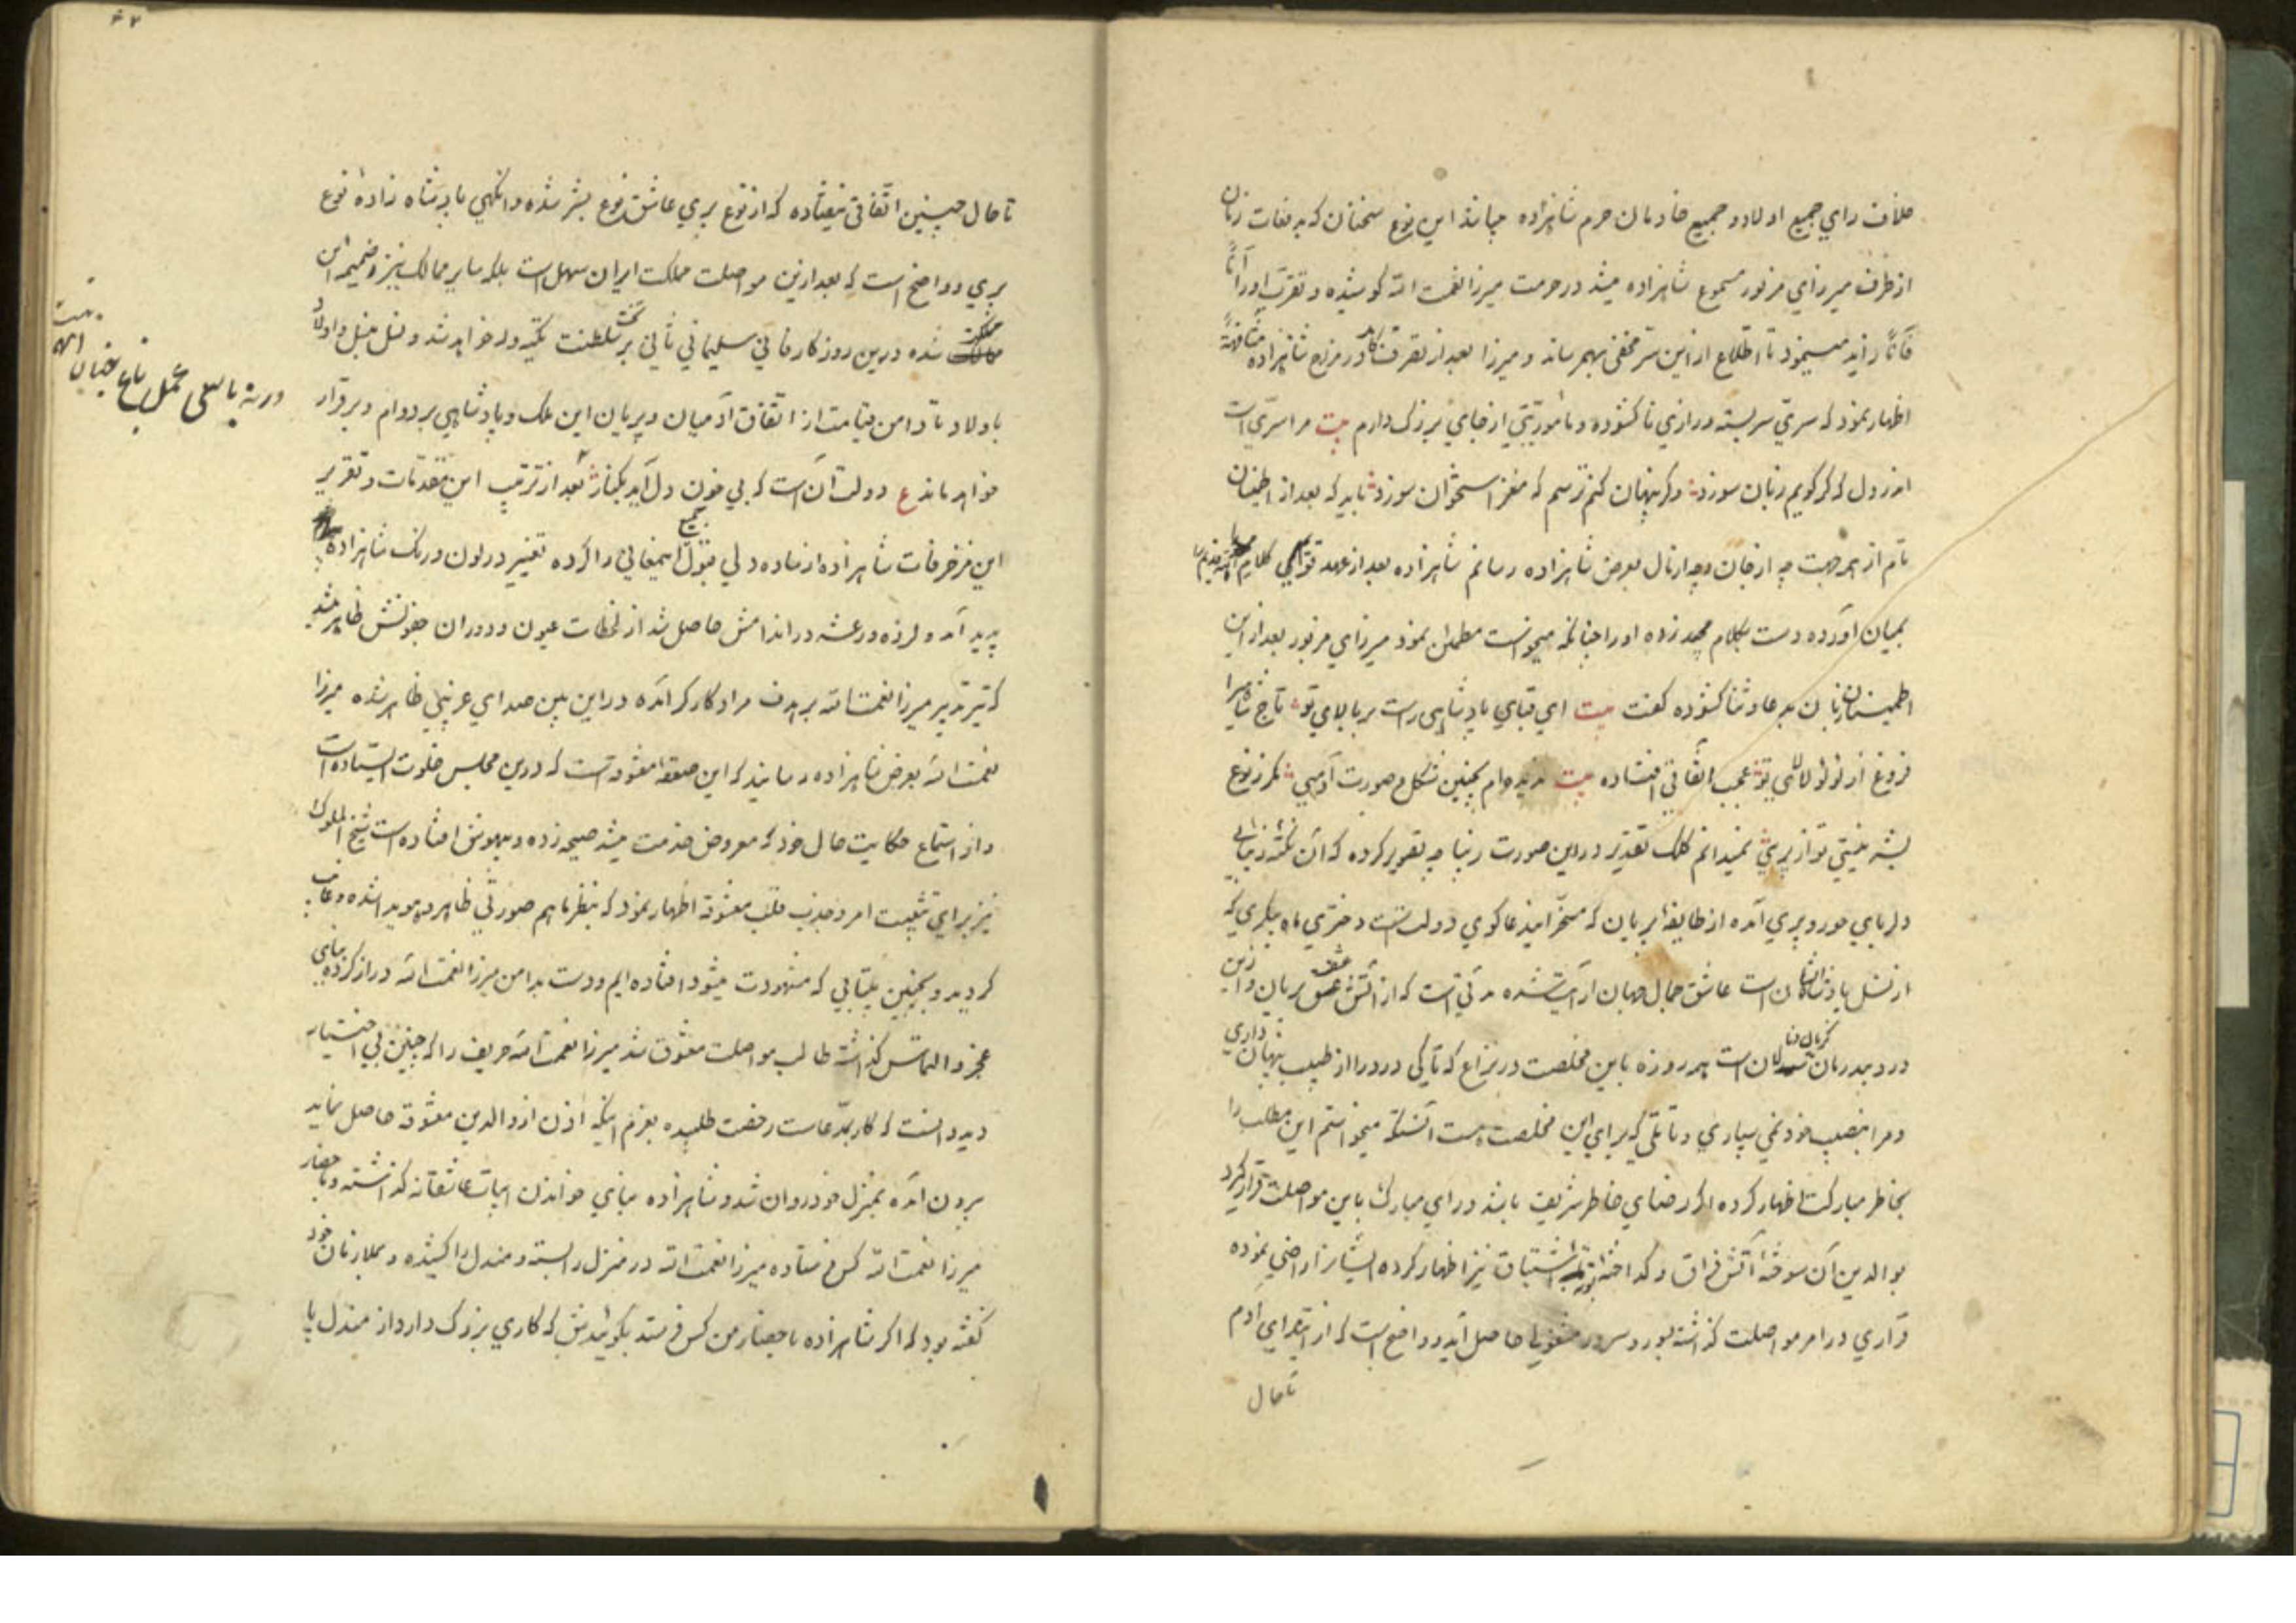 خلاف رای جمیع اولاد و جمیع خادمان حرم شاهزاده چپانده این نوع سخنان که به دفعات زنان
از طرف میرزای مزبور مسموع شاهزاده میشد در حرمت میرزا نعمت الله کوشیده و تقرب او را آناً
فآناً زاید مینمود تا اطلاع از این سرّ مخفی بهم رساند و میرزا بعد از تصرف کلی در مزاج شاهزاده مشافهةً
اظهار نمود که سرّی سربسته و رازی ناکشوده و مأموریتی از جای بزرک دارم بیت مرا سرّی است
اندر دل که کر کویم زبان سوزد و کر پنهان کنم ترسم که مغز استخوان سوزد باید که بعد از اطمینان
تام از هر جهت چه از جان و چه از مال بعرض شاهزاده رسانم شاهزاده بعد از عهد قوی کلام
بمیان آورده دست بکلام مجید زده او را چنانکه میخواست مطمئن نمود میرزای مزبور بعد از این
اطمینان زبان به دعا و ثنا کشوده کفت بیت ای قبای پادشاهی راست بر بالای تو تاج شاهی را
فروغ از لؤلؤ لالای تو عجب اتفاقی افتاده بیت ندیده‌ام بچنین شکل و صورت آدمی مکر ز نوع
بشر نیستی تو از پریی نمیدانم کلک تقدیر در این صورت زیبا چه تقریر کرده که آن
دلربای حور و پری آمده از طایفهٔ پریان که مسخّر این دعاکوی دولت است دختری ماه پیکری که
از نسل پادشاهان است عاشق جمال جهان آرایت شده مدتی است که از آتش عشق بریان و از این
درد بیدرمان کریان است هر روزه باین مخلصت در نزاع که تا کی درد را از طبیب پنهان داری
و مرا بنصیب خود نمی سپاری و تأملی که برای این مخلصت هست آنستکه میخواستم این مطلب را
بخاطر مبارکت اظهار کرده اکر رضای خاطر شریف باشد و رای مبارک باین مواصلت قرار کیرد
بوالدین آن سوختهٔ آتش فراق و کداختهٔ اشتیاق نیز اظهار کرده ایشان را راضی نموده
قراری در امر مواصلت کذاشته سور و سرور حاصل آید و واضح است که از ابتدای آدم
تا حال
تا حال چنین اتفاقی نیفتاده که از نوع پری عاشق نوع بشر شده وانکهی پادشاه زادهٔ نوع
پری و واضح است که بعد از این مواصلت مملکت ایران سهل است بلکه سایر ممالک نیز ضمیمه این
مملکت شده درین روزکار فانی سلیمانی ثانی بر تخت سلطنت تکیه‌ور خواهد شد و نسل بنسل و اولاد
باولاد تا دامن قیامت از اتفاق آدمیان و پریان این ملک و پادشاهی بر دوام و برقرار
خواهد ماند ع دولت آن است که بی خون دل آید بکنار بعد از ترتیب این مقدمات و تقریر
این مزخرفات شاهزاده از ساده دلی قبول جمیع این معانی را کرده تغییر در لون و رنک شاهزاده
پدید آمد و لرزه و رعشه در اندامش حاصل شد از لحظات عیون و دوران جفونش ظاهر شد
که تیر تدبیر میرزا نعمت الله بر هدف مراد کارکر آمده در این بین صدای غریبی ظاهر شده میرزا
نعمت الله بعرض شاهزاده رسانید که این صعقهٔ معشوقه است که درین مجلس خلوت ایستاده است
و از استماع حکایت حال خود که معروض خدمت میشد صیحه زده و بیهوش افتاده است شیخ الملوک
نیز برای تثبیت امر و جذب قلب معشوقه اظهار نمود که بنظر ما هم صورتی ظاهر و هویدا شده و غایب
کردید و بچنین بیتابی که مشهودت میشود افتاده ایم و دست بدامن میرزا نعمت الله دراز کرده بنای
عجز و التماس کذاشته طالب مواصلت معشوق شد میرزا نعمت الله حریف را که چنین بی اختیار
دید دانست که کار بمدّعاست رخصت طلبیده بعزم اینکه اذن از والدین معشوقه حاصل نماید
بیرون آمده بمنزل خود روان شد و شاهزاده بنای خواندن ابیات عاشقانه کذاشته و باحضار
میرزا نعمت الله کس فرستاده میرزا نعمت الله در منزل را بسته و مندل را کشیده و بملازمان خود
کفته بود که اکر شاهزاده باحضار من کس فرستد بکوئیدش که کاری بزرک دارد از مندل پا